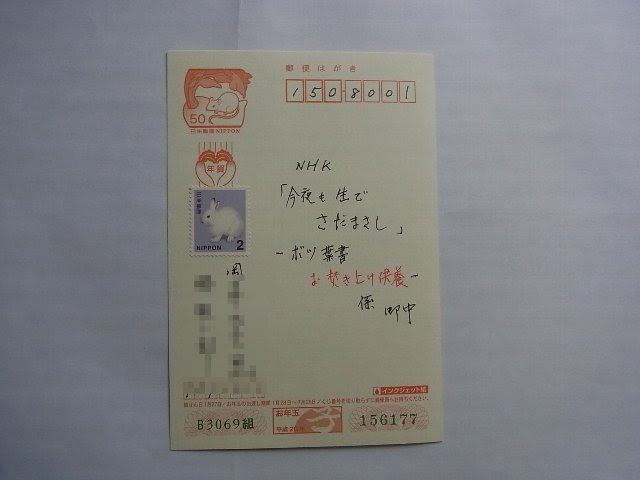 郵便はがき
1508001
50
日本郵便NIPPON
年賀
日本郵便
NIPPON 2
NHK
「今夜も生で
さだまさし」
-ボツ葉書
お焚き上げ供養-
係 御中
岡
インクジェット紙
お年玉
平成20年
子
B3069組
156177